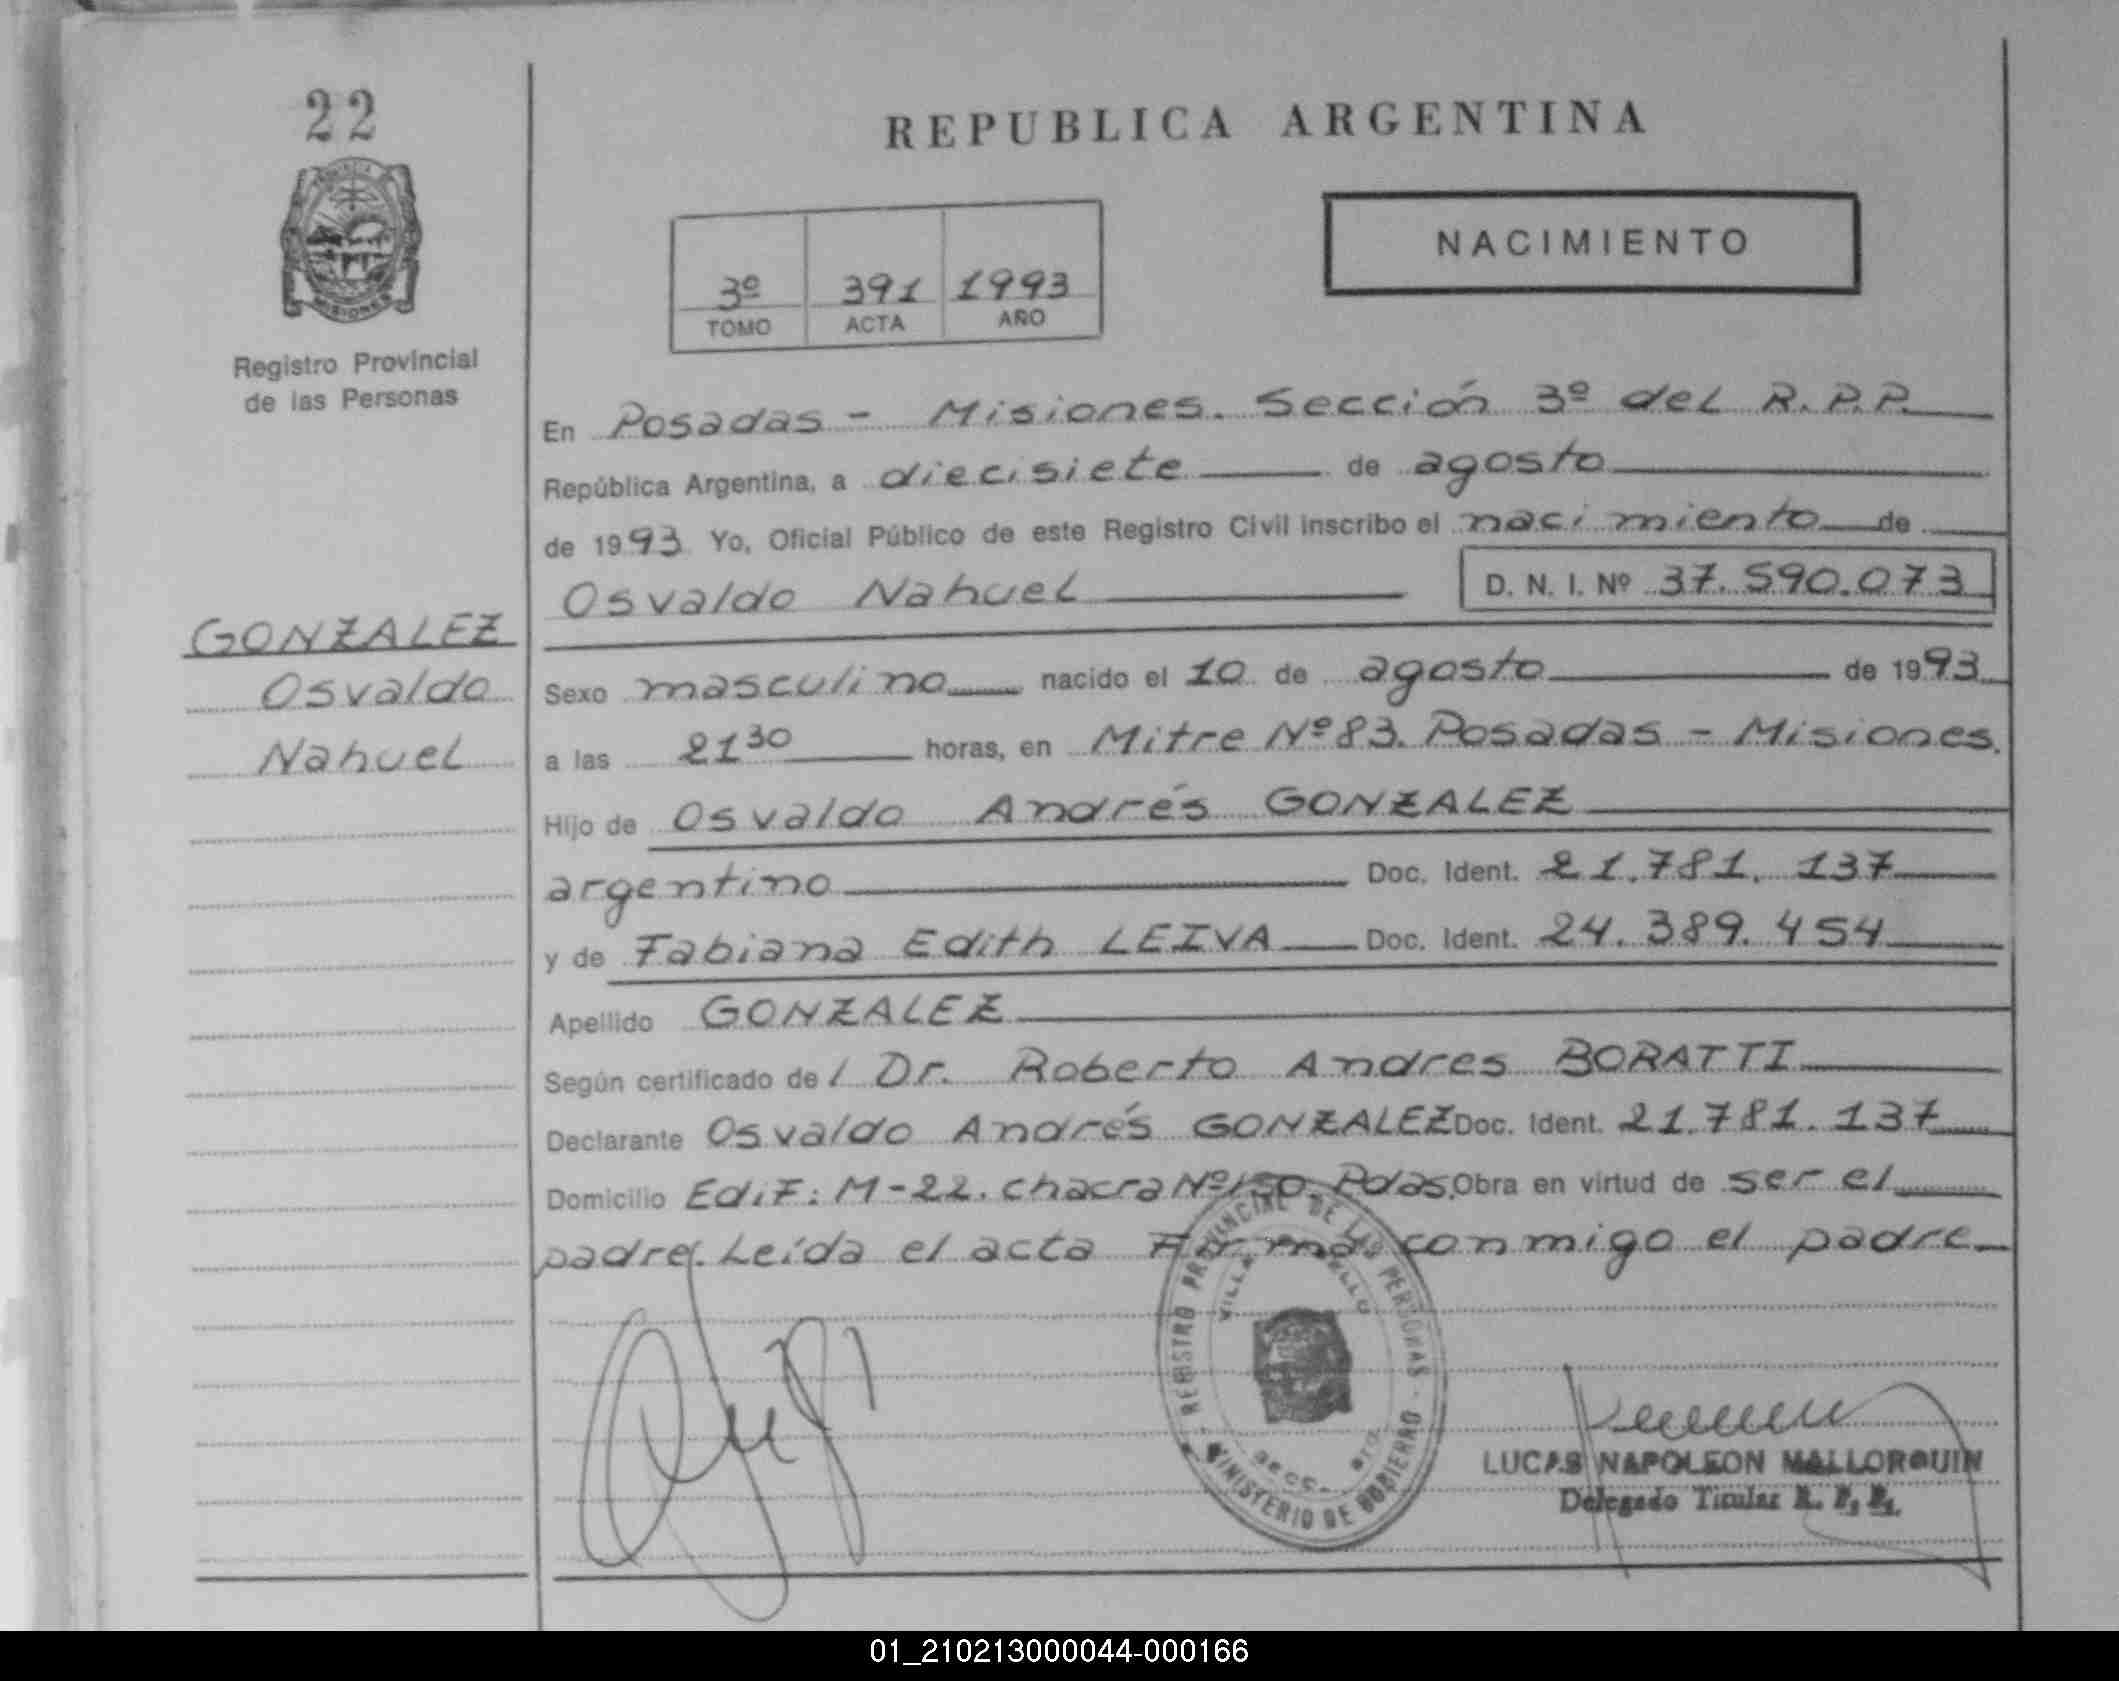 22
REPUBLICA ARGENTINA
PROVINCIA
MISIONES
Registro Provincial
de las Personas
3º 391 1993
TOMO ACTA AÑO
NACIMIENTO
En Posadas - Misiones. Sección 3º del R.P.P.
República Argentina, a diecisiete de agosto
de 1993 Yo, Oficial Público de este Registro Civil inscribo el nacimiento de
Osvaldo Nahuel D. N. I. Nº 37.590.073
GONZALEZ
Osvaldo
Nahuel
Sexo masculino nacido el 10 de agosto de 1993
a las 21 30 horas, en Mitre Nº 83. Posadas - Misiones.
Hijo de Osvaldo Andrés GONZALEZ
argentino Doc. Ident. 21.781.137
y de Fabiana Edith LEIVA Doc. Ident. 24.389.454
Apellido GONZALEZ
Según certificado del Dr. Roberto Andres BORATTI
Declarante Osvaldo Andrés GONZALEZ Doc. Ident. 21.781.137
Domicilio Edif: M-22. chacra Nº 150. Pdas. Obra en virtud de ser el
padre. Leída el acta Firma conmigo el padre
REGISTRO PROVINCIAL DE LAS PERSONAS
VILLA
SECC.
MINISTERIO DE GOBIERNO
LUCAS NAPOLEON MALLORQUIN
Delegado Titular R. P. P.
01_210213000044-000166